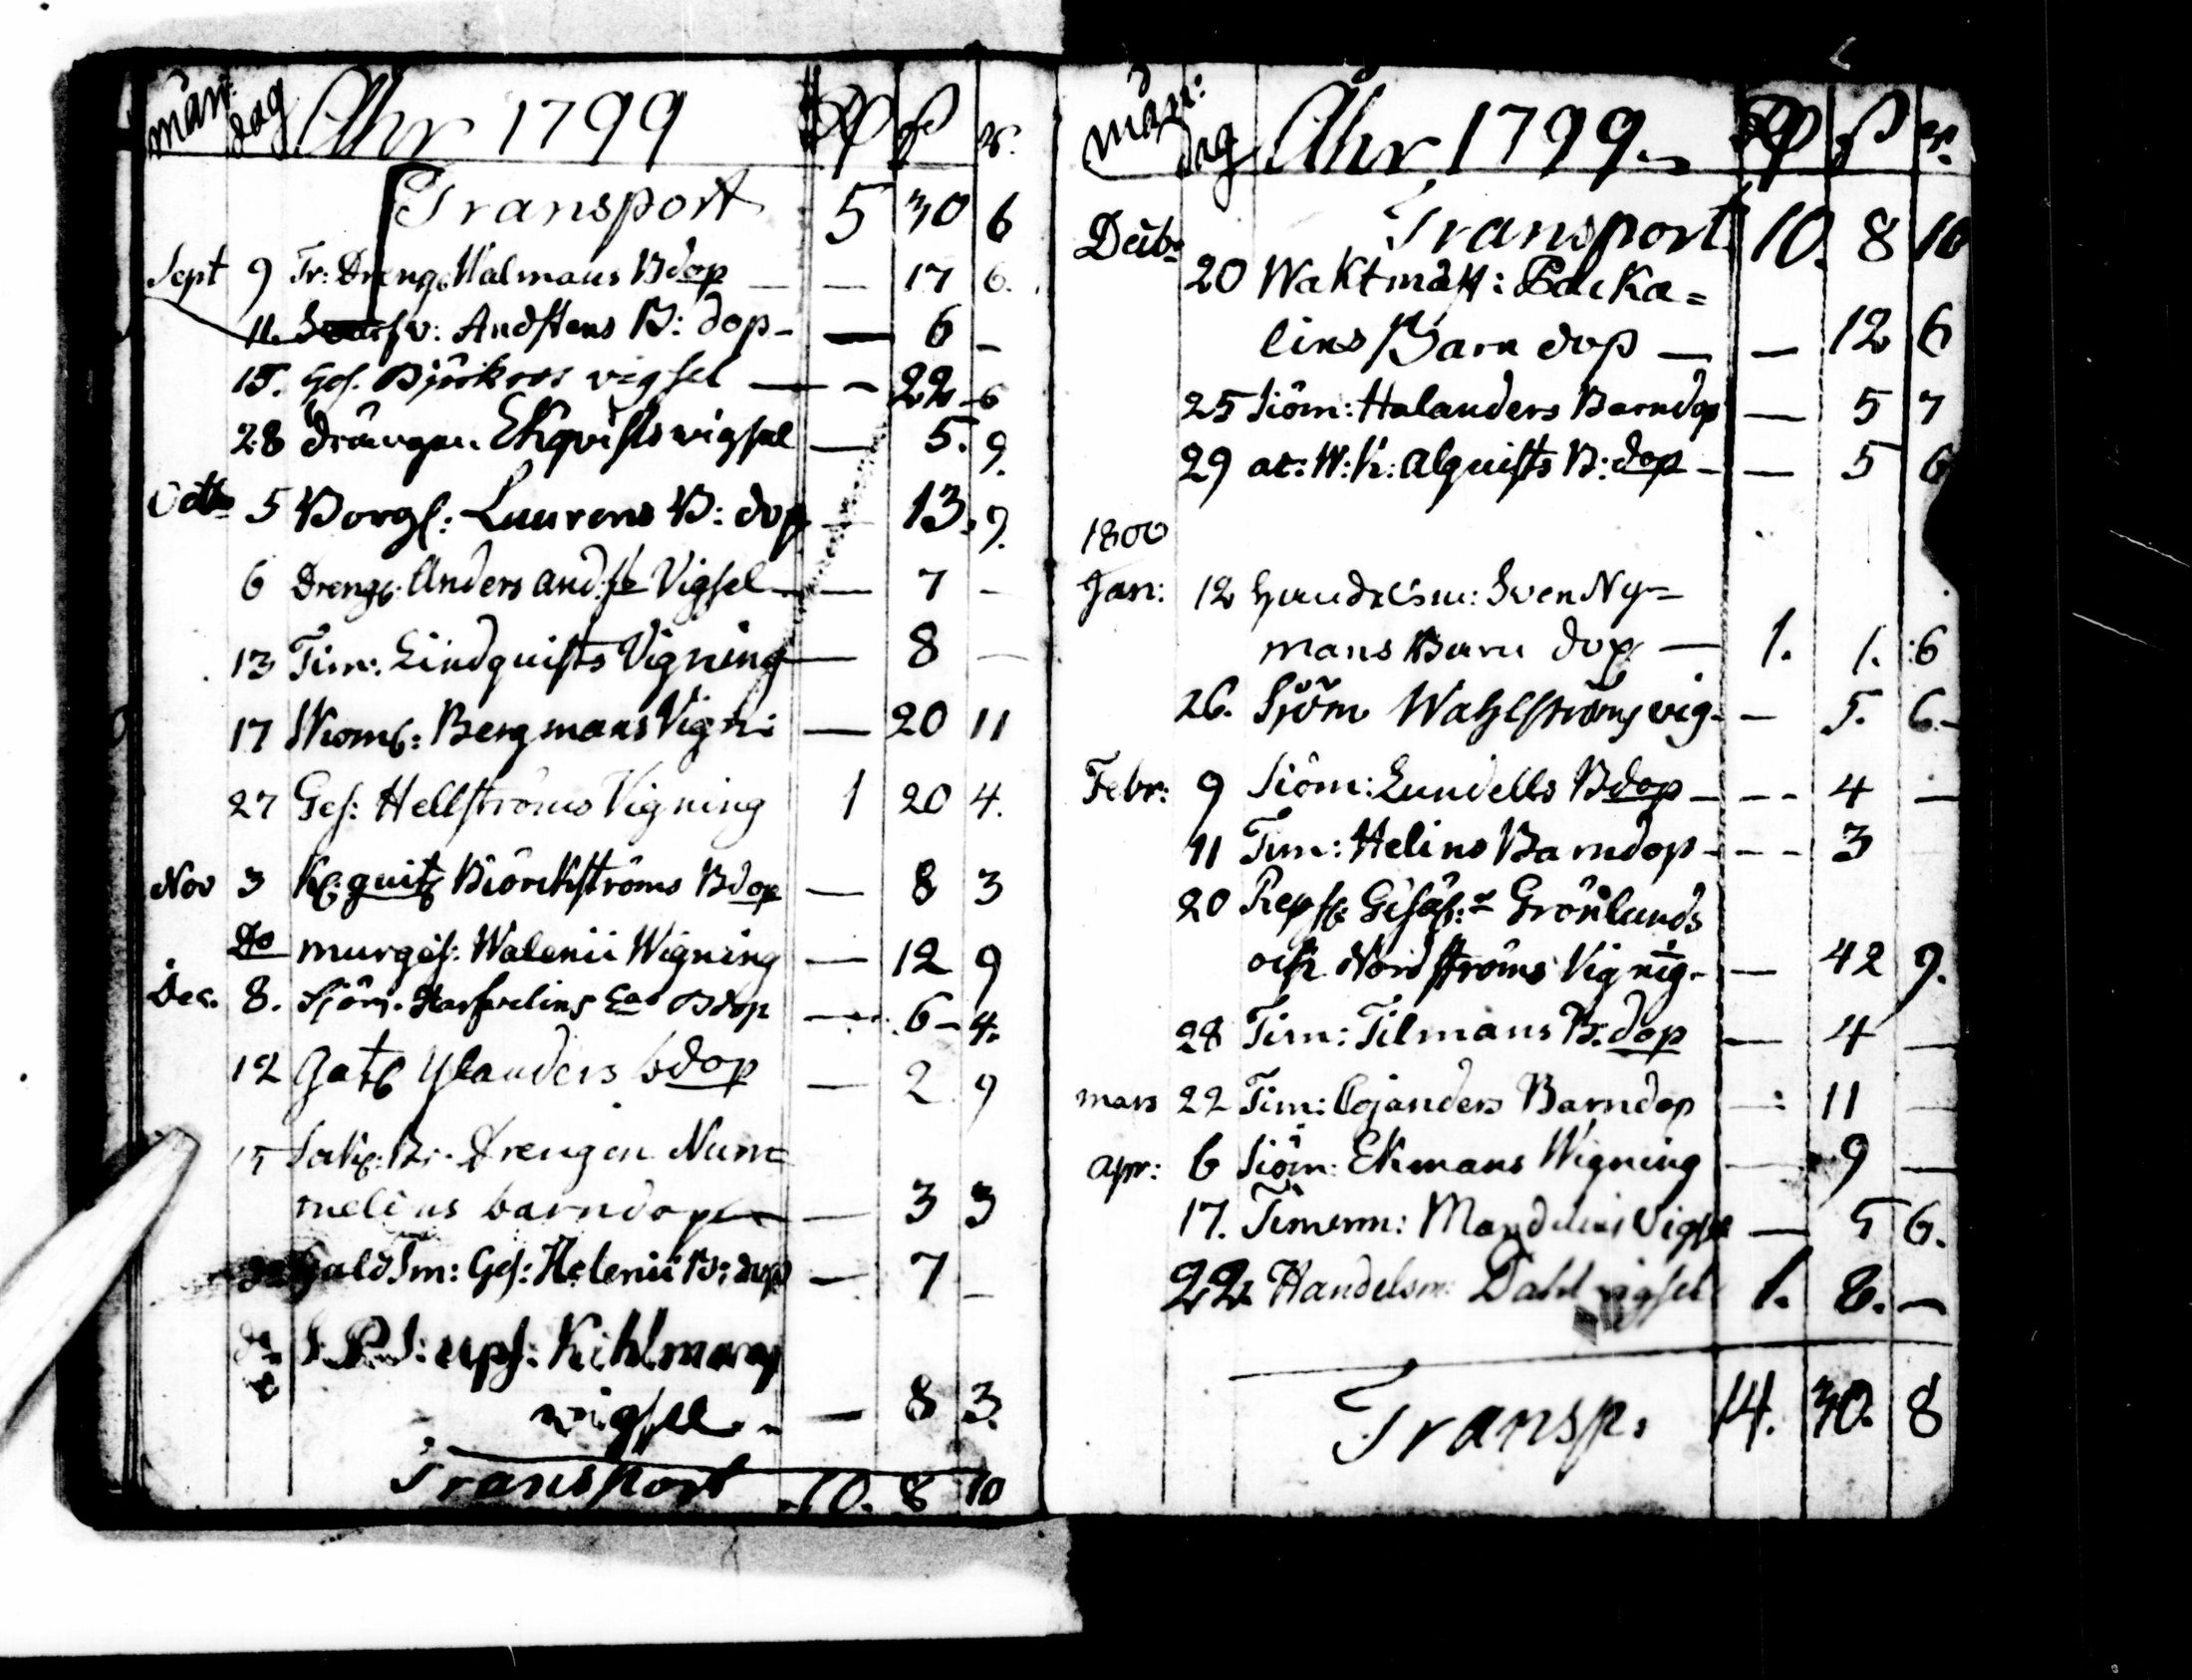 mån: dag Åhr 1799 Rd ß rs.
Transport 5 30 6
Sept 9 Tr: Dreng: Malmans Bdop — — 17 6.
11 Andstens B: dop — — 6 —
15. Ges. Björkroos vigsel — — 22 6
28 drängen Ekqvists vigsel — 5. 9.
Octb 5 Borgs: Laurens B: dop — 13. 9.
6 Drengs: Anders And:s Vigsel — — 7 —
13 Tim: Lindquists Vigning — 8 —
17 Bergmans Vign: — 20 11
27 Ges: Hellströms Vigning 1 20 4.
Nov 3 Biörckströms Bdop — 8 3
Do murges: Walenii Wigning — 12 9
Dec. 8. Sjöm. Bdop — 6 — 4.
12 Gatb Ylanders bdop — 2 9
15 Drengen Num=
melins barndop — — 3 3
Ges: Helenii B: dop — 7 —
do Kihlmans
vigsel. — — 8 3.
Transport 10. 8 10
mån: dag Åhr 1799. Rd ß rs.
Decbr Transport 10. 8 10
20 Waktmäst: Backa=
lins Barn dop — — 12 6
25 Siöm: Halanders Barndop — 5 7
29 at: W: K: Alquists B: dop — — 5 6
1800
Jan: 12 Handelsm: Sven Ny=
mans Barn dop — 1. 1. 6
26. Sjöm Wahlströms vig. — 5. 6. —
Febr: 9 Siöm: Lundells Bdop — — 4 —
11 Tim: Helins Barndop — — 3
20 Gesäl: Grönlunds
och Nordströms Vignig. — 42 9.
28 Tim: Tilmans B. dop — 4 —
mars 22 Tim: Cojanders Barndop — 11 —
apr: 6 Siöm: Ekmans Wigning — 9 —
17. Timerm: Mandelins Vigsel — 5 6.
22 Handelsm: Dahl vigsel 1. 8. —
Transp. 14. 30. 8